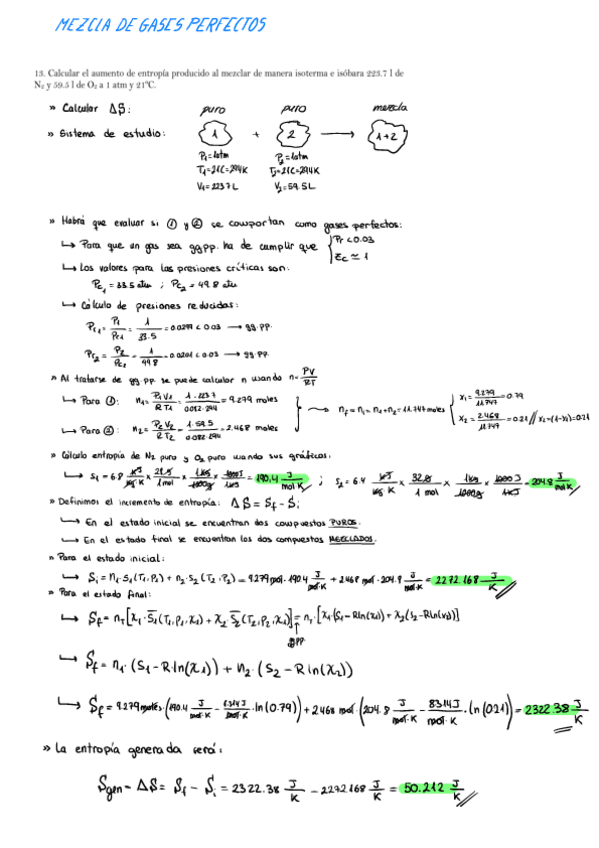 MEZCLA DE GASES PERFECTOS
13. Calcular el aumento de entropía producido al mezclar de manera isoterma e isóbara 223.7 l de
N₂ y 59.5 l de O₂ a 1 atm y 21ºC.
» Calcular ΔS:
puro puro mezcla
» Sistema de estudio: 1 + 2 → 1+2
P₁=1atm P₂=1atm
T₁=21C=294K T₂=21C=294K
V₁=223.7L V₂=59.5L
» Habrá que evaluar si ① y ② se comportan como gases perfectos:
↳ Para que un gas sea gg.pp. ha de cumplir que { Pr < 0.03
Zc ≃ 1
↳ Los valores para las presiones críticas son:
Pc₁ = 33.5 atm ; Pc₂ = 49.8 atm
↳ Cálculo de presiones reducidas:
Pr₁ = P₁/Pc₁ = 1/33.5 = 0.0299 < 0.03 → gg.pp.
Pr₂ = P₂/Pc₂ = 1/49.8 = 0.0201 < 0.03 → gg.pp.
» Al tratarse de gg.pp. se puede calcular n usando n = PV/RT
↳ Para ①: n₁ = P₁V₁/RT₁ = 1·223.7/0.082·294 = 9.279 moles
↳ Para ②: n₂ = P₂V₂/RT₂ = 1·59.5/0.082·294 = 2.468 moles
→ nf = ni = n₁+n₂ = 11.747 moles { x₁ = 9.279/11.747 = 0.79
x₂ = 2.468/11.747 = 0.21 // x₂ = (1-x₁) = 0.21
» Cálculo entropía de N₂ puro y O₂ puro usando sus gráficas:
↳ s₁ = 6.8 kJ/kg K × 28 g/1 mol × 1 kg/1000g × 1000J/1kJ = 190.4 J/mol K ; s₂ = 6.4 kJ/kg K × 32 g/1 mol × 1kg/1000g × 1000 J/1kJ = 204.8 J/mol K
» Definimos el incremento de entropía: ΔS = Sf - Si
↳ En el estado inicial se encuentran dos compuestos PUROS.
↳ En el estado final se encuentran los dos compuestos MEZCLADOS.
» Para el estado inicial:
↳ Si = n₁·s₁(T₁,P₁) + n₂·s₂(T₂,P₂) = 9.279 mol·190.4 J/mol·K + 2.468 mol·204.8 J/mol·K = 2272.168 J/K
» Para el estado final:
↳ Sf = nT[x₁·S̄₁(T₁,P₁,x₁) + x₂·S̄₂(T₂,P₂,x₂)] = nT·[x₁(s₁ - Rln(x₁)) + x₂(s₂ - Rln(x₂))]
gg.pp.
↳ Sf = n₁·(s₁ - R·ln(x₁)) + n₂·(s₂ - R ln(x₂))
↳ Sf = 9.279 moles·(190.4 J/mol·K - 8.314J/mol·K·ln(0.79)) + 2.468 mol·(204.8 J/mol·K - 8.314J/mol·K·ln(0.21)) = 2322.38 J/K
» La entropía generada será:
Sgen = ΔS = Sf - Si = 2322.38 J/K - 2272.168 J/K = 50.212 J/K